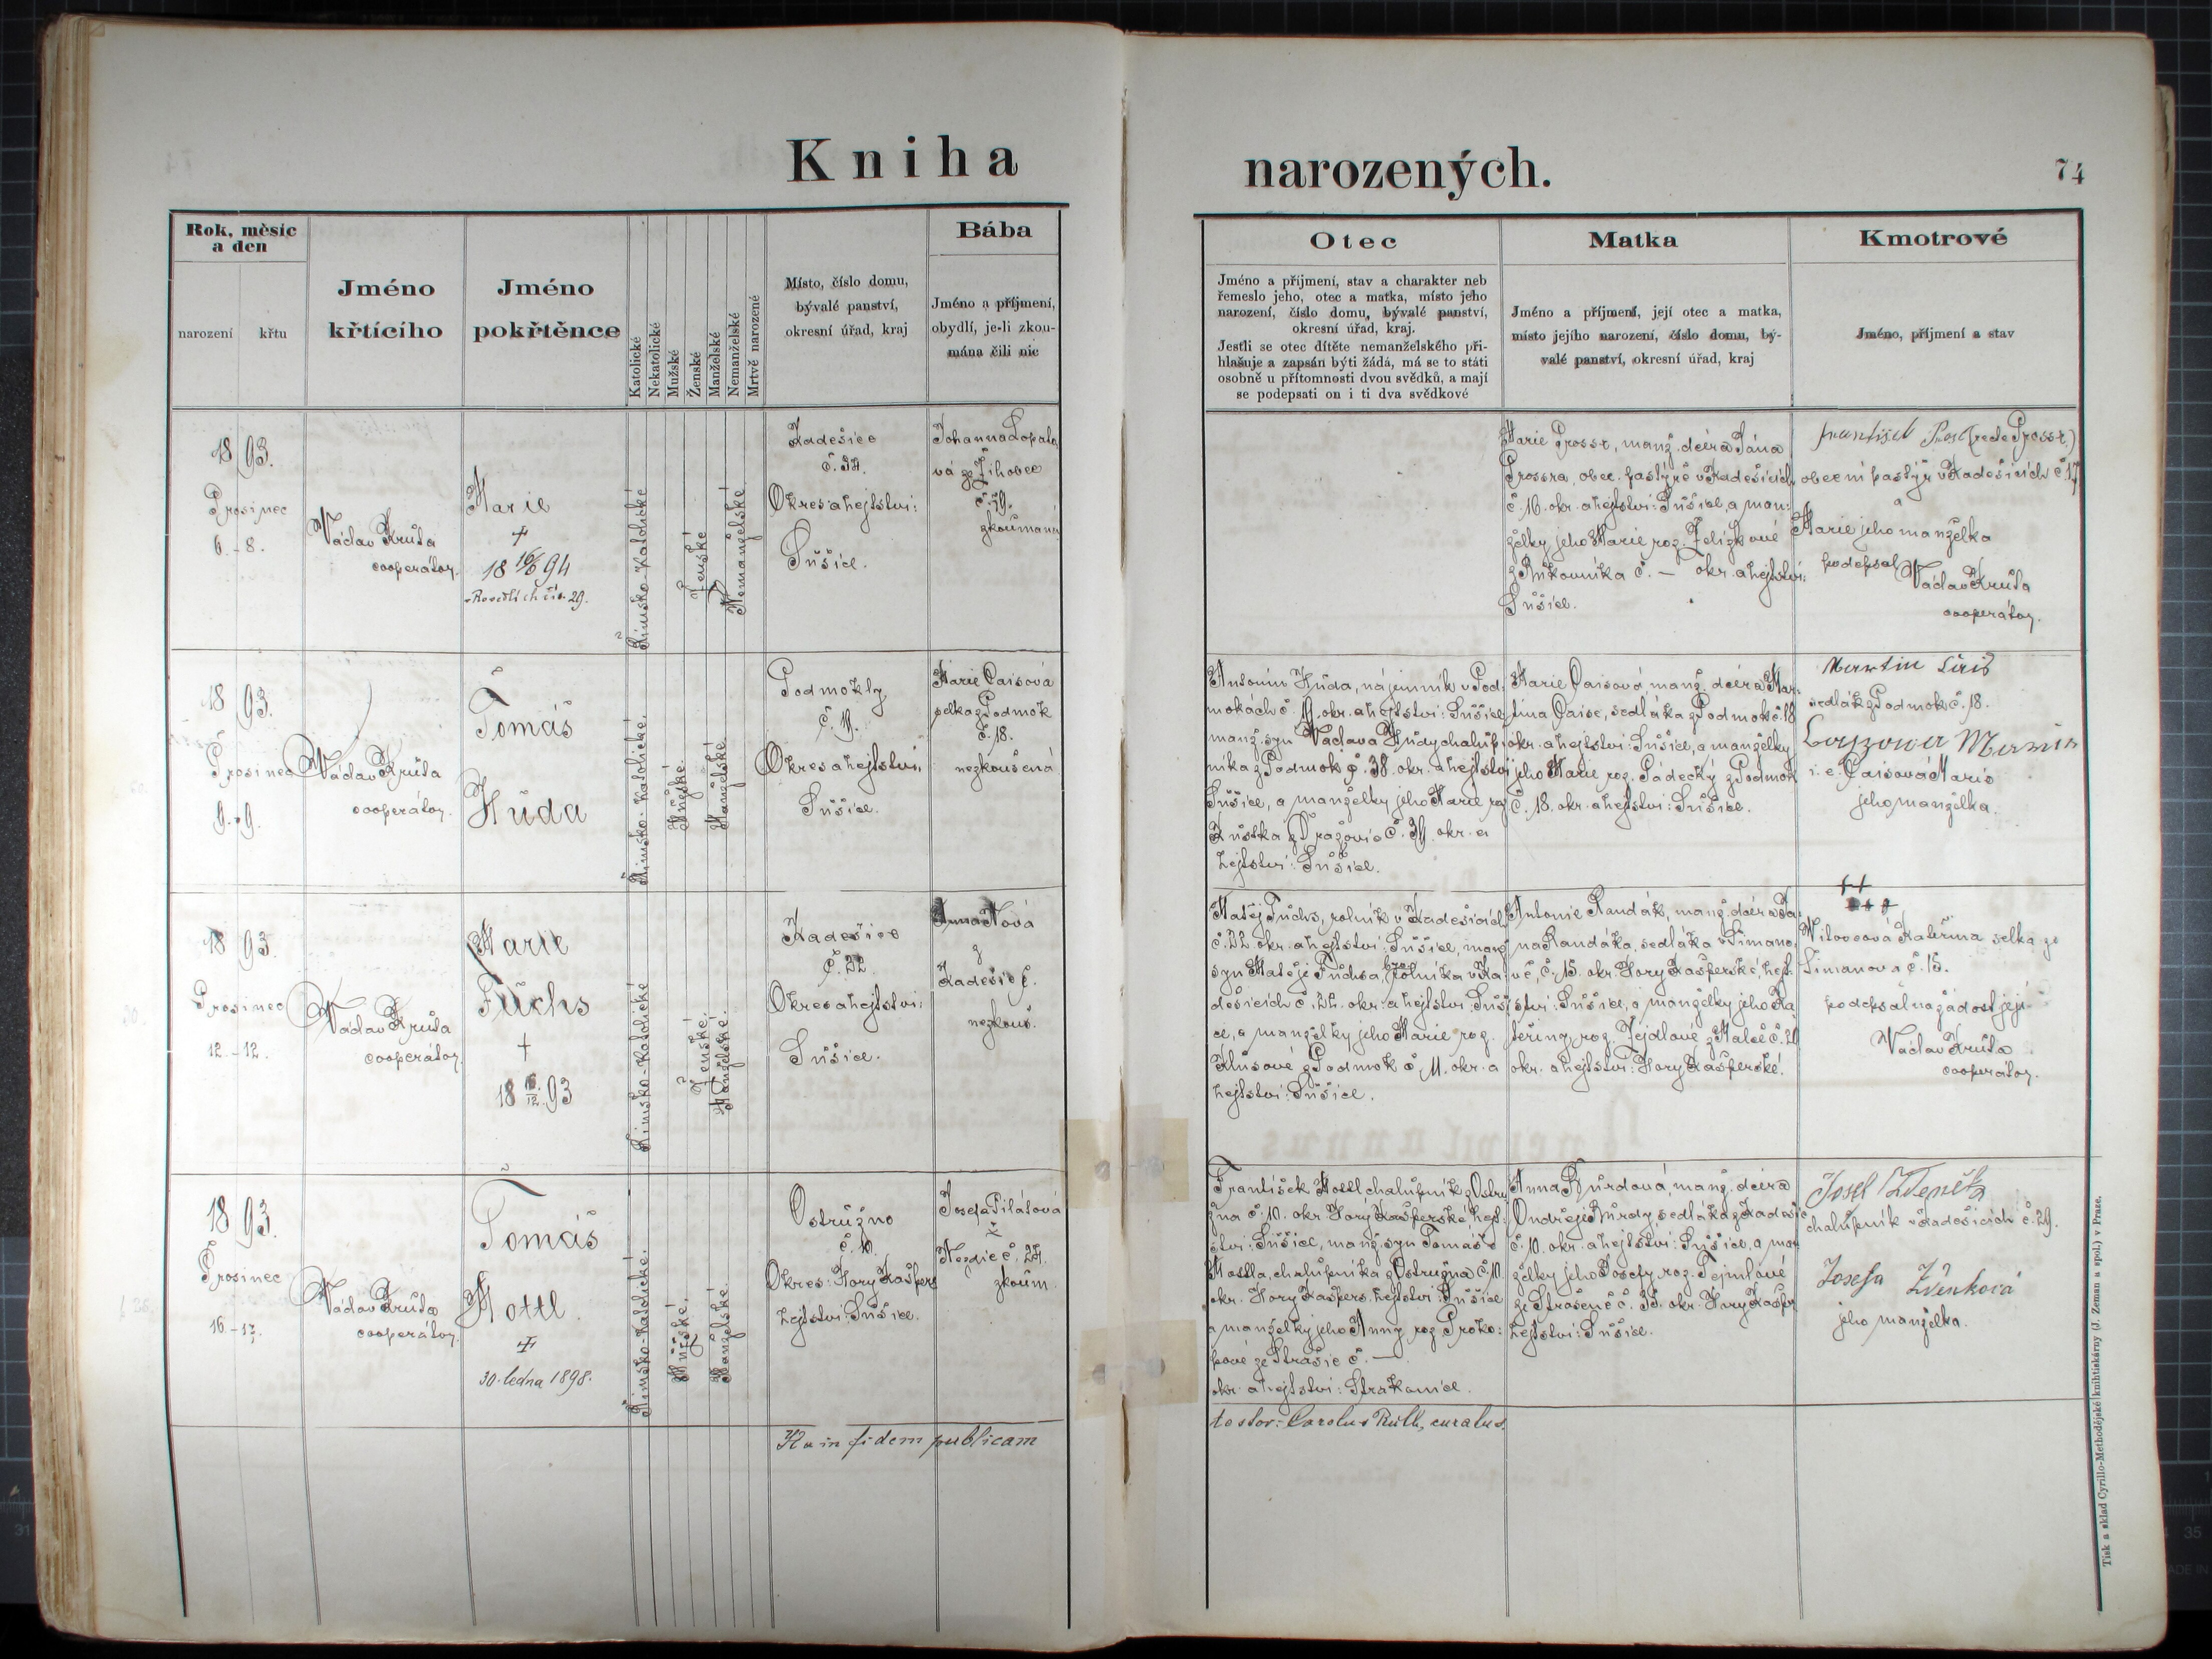 Kniha
narozených.
74
Rok, měsíc
a den
narození
křtu
Jméno
křtícího
Jméno
pokřtěnce
Katolické
Nekatolické
Mužské
Ženské
Manželské
Nemanželské
Mrtvě narozené
Místo, číslo domu,
bývalé panství,
okresní úřad, kraj
Bába
Jméno a příjmení,
obydlí, je-li zkou-
mána čili nic
Otec
Jméno a příjmení, stav a charakter neb
řemeslo jeho, otec a matka, místo jeho
narození, číslo domu, bývalé panství,
okresní úřad, kraj.
Jestli se otec dítěte nemanželského při-
hlašuje a zapsán býti žádá, má se to státi
osobně u přítomnosti dvou svědků, a mají
se podepsati on i ti dva svědkové
Matka
Jméno a příjmení, její otec a matka,
místo jejího narození, číslo domu, bý-
valé panství, okresní úřad, kraj
Kmotrové
Jméno, příjmení a stav
18 93.
Prosinec
6. - 8.
Václav Kruta
cooperátor.
Marie
+
18 16/6 94
Římsko-Katolické
Ženské
Nemanželské
Kadešice
Okres a hejtství:
Sušice.
Johanna Lopata
vá ze Žihovec
č. 59.
zkoumaná
Marie Prossr, manž. dcera Jána
Prossra, obec. pastýře v Kadešicích
č. 16. okr. a hejtství: Sušice, a man:
želky jeho Marie roz. Jelízkové
č. — okr. a hejtství:
Sušice.
František (recte Prossr)
obecní pastýř v Kadešicích č. 17
a
Marie jeho manželka
podepsal Václav Kruta
cooperátor.
18 93.
Prosinec
9. - 9.
Václav Kruta
cooperátor.
Tomáš
Hůda
Římsko-Katolické.
Mužské.
Manželské.
Podmokly
č. 19.
Okres a hejtství:
Sušice.
Marie Caisová
selka z Podmok
č. 18.
nezkoušená
Antonín Hůda, nájemník v Pod:
mokách č. 19. okr. a hejtství: Sušice
manž. syn Václava Hůdy chalup:
níka z Podmok č. 38. okr. a hejtství
Sušice, a manželky jeho Marie roz.
z Dražovic č. 39. okr. a
hejtství: Sušice.
Marie Caisová, manž. dcera Mar:
tina Caise, sedláka z Podmok č. 18
okr. a hejtství: Sušice, a manželky
jeho Marie roz. Pádecký z Podmok
č. 18. okr. a hejtství: Sušice.
Martin
sedlák z Podmok č. 18.
i. e. Caisová Marie
jeho manželka.
18 93.
Prosinec
12. - 12.
Václav Kruta
cooperátor.
Marie
Fuchs
+
18 16/12 93
Římsko-Katolické
Ženské.
Manželské.
Kadešice
č. 22.
Okres a hejtství:
Sušice.
Anna Nová
z
Kadešic č.
nezkouš.
Matěj Fuchs, rolník v Kadešicích
č. 22. okr. a hejtství: Sušice, manž
syn Matěje Fuchsa, rolníka v Ka:
dešicích č. 22. okr. a hejtství: Suši
ce, a manželky jeho Marie roz.
Klusové z Podmok č. 11. okr. a
hejtství: Sušice.
Antonie Randák, manž. dcera Ja:
na Randáka, sedláka v Šimano:
vě, č. 15. okr. Hory Kašperské, hejt
ství: Sušice, a manželky jeho Ka
teřiny, roz. Jejdlové z Malče č. 21
okr. a hejtství: Hory Kašperské.
+++
Vítovcová Kateřina selka ze
Šimanova č. 15.
podepsal na žádost její
Václav Kruta
cooperátor.
18 93.
Prosinec
16. - 17.
Václav Kruta
cooperátor.
Tomáš
Mottl.
+
30. ledna 1898.
Římsko-Katolické.
Mužské.
Manželské.
Ostružno
č. 10.
Okres: Hory Kašpers
hejtství: Sušice.
Josefa Pilátová
z
Nezdic č. 24.
zkoum.
František Mottl chalupník z Ostru
žna č. 10. okr. Hory Kašperské hejt:
ství: Sušice, manž. syn Tomáše
Mottla, chalupníka z Ostružna č. 10.
okr. Hory Kašpers. hejtství: Sušice
a manželky jeho Anny roz. Proko:
pové ze Strašic č. —
okr. a hejtství: Strakonice.
Anna Burdová, manž. dcera
Ondřeje Burdy, sedláka z Kadešic
č. 10. okr. a hejtství: Sušice, a man
želky jeho Josefy, roz. Tejmlové
č. 35. okr. Hory Kašper
hejtství: Sušice.
Josef Zdeněk
chalupník v Kadešicích č. 29.
Josefa Zdenková
jeho manželka.
Ita in fidem publicam
testor: Carolus Rutt, curatus.
Tisk a sklad Cyrillo-Methodějské knihtiskárny (J. Zeman a spol.) v Praze.